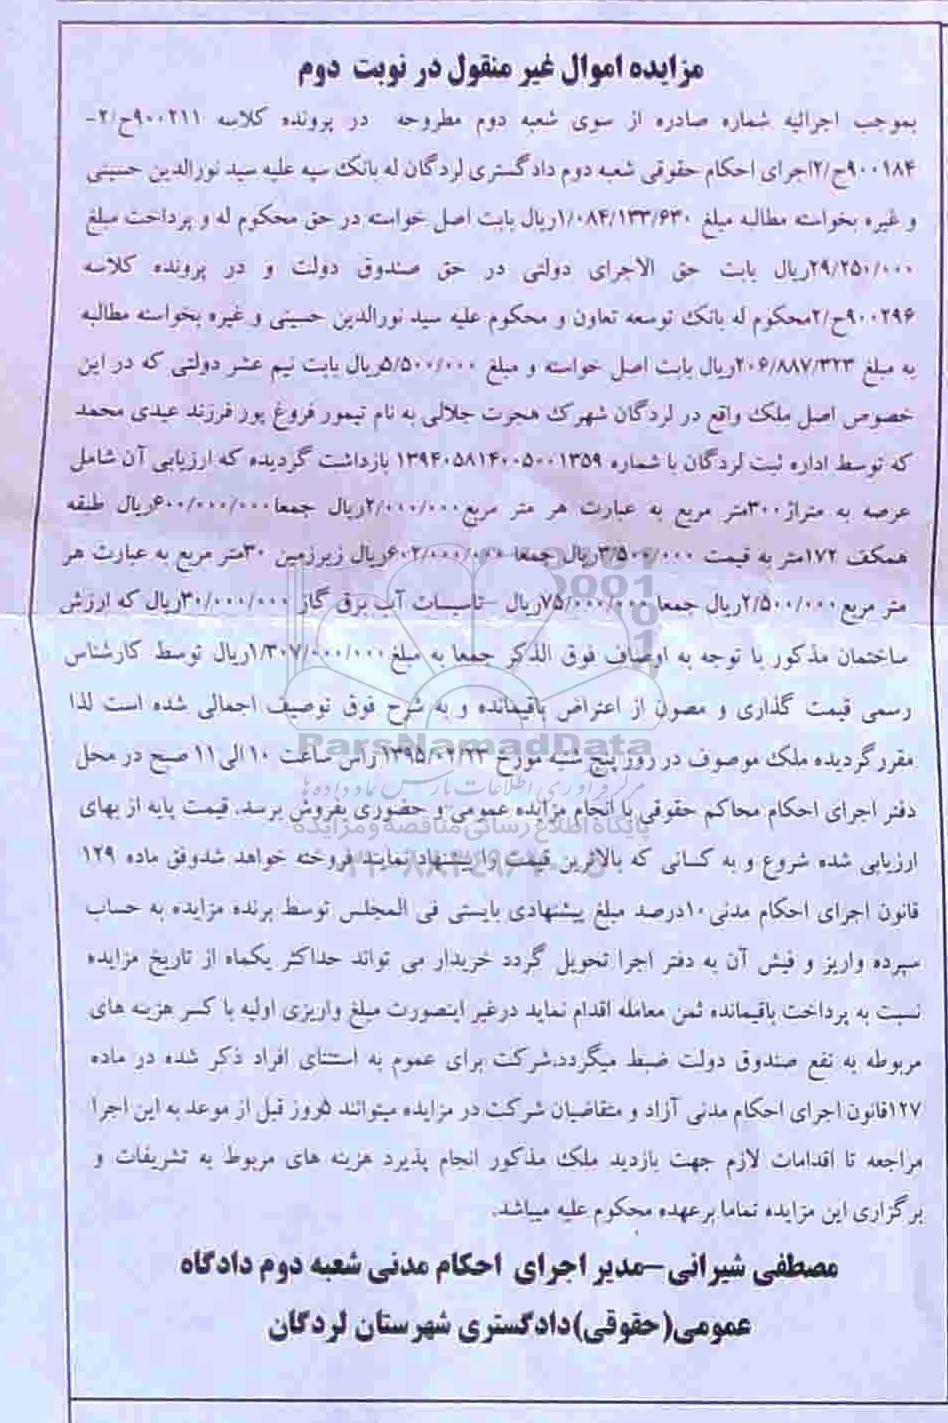 مزایده اموال غیر منقول در نوبت دوم
بموجب اجرائیه شماره صادره از سوی شعبه دوم مطروحه در پرونده کلاسه ۹۰۰۲۱۱ح/۲-
۹۰۰۱۸۴ح/۲اجرای احکام حقوقی شعبه دوم دادگستری لردگان له بانک سپه علیه سید نورالدین حسینی
و غیره بخواسته مطالبه مبلغ ۱/۰۸۴/۱۳۳/۶۳۰ریال بابت اصل خواسته در حق محکوم له و پرداخت مبلغ
۲۹/۲۵۰/۰۰۰ریال بابت حق الاجرای دولتی در حق صندوق دولت و در پرونده کلاسه
۹۰۰۲۹۶ح/۲محکوم له بانک توسعه تعاون و محکوم علیه سید نورالدین حسینی و غیره بخواسته مطالبه
به مبلغ ۲۰۶/۸۸۷/۳۲۳ریال بابت اصل خواسته و مبلغ ۵/۵۰۰/۰۰۰ریال بابت نیم عشر دولتی که در این
خصوص اصل ملک واقع در لردگان شهرک هجرت جلالی به نام تیمور فروغ پور فرزند عیدی محمد
که توسط اداره ثبت لردگان با شماره ۱۳۹۴۰۵۸۱۴۰۰۵۰۰۱۳۵۹ بازداشت گردیده که ارزیابی آن شامل
عرصه به متراژ۳۰۰متر مربع به عبارت هر متر مربع۲/۰۰۰/۰۰۰ریال جمعا۶۰۰/۰۰۰/۰۰۰ریال طبقه
همکف ۱۷۲متر به قیمت ۳/۵۰۰/۰۰۰ریال جمعا ۶۰۲/۰۰۰/۰۰۰ریال زیرزمین ۳۰متر مربع به عبارت هر
متر مربع۲/۵۰۰/۰۰۰ریال جمعا ۷۵/۰۰۰/۰۰۰ریال –تاسیسات آب برق گاز ۳۰/۰۰۰/۰۰۰ریال که ارزش
ساختمان مذکور با توجه به اوصاف فوق الذکر جمعا به مبلغ۱/۳۰۷/۰۰۰/۰۰۰ریال توسط کارشناس
رسمی قیمت گذاری و مصون از اعتراض باقیمانده و به شرح فوق توصیف اجمالی شده است لذا
مقررگردیده ملک موصوف در روز پنج شنبه مورخ ۱۳۹۵/۰۲/۲۳ راس ساعت ۱۰الی۱۱ صبح در محل
دفتر اجرای احکام محاکم حقوقی با انجام مزایده عمومی و حضوری بفروش برسد. قیمت پایه از بهای
ارزیابی شده شروع و به کسانی که بالاترین قیمت را پیشنهاد نمایند فروخته خواهد شدوفق ماده ۱۲۹
قانون اجرای احکام مدنی۱۰درصد مبلغ پیشنهادی بایستی فی المجلس توسط برنده مزایده به حساب
سپرده واریز و فیش آن به دفتر اجرا تحویل گردد خریدار می تواند حداکثر یکماه از تاریخ مزایده
نسبت به پرداخت باقیمانده ثمن معامله اقدام نماید درغیر اینصورت مبلغ واریزی اولیه با کسر هزینه های
مربوطه به نفع صندوق دولت ضبط میگردد.شرکت برای عموم به استثنای افراد ذکر شده در ماده
۱۲۷قانون اجرای احکام مدنی آزاد و متقاضیان شرکت در مزایده میتوانند ۵روز قبل از موعد به این اجرا
مراجعه تا اقدامات لازم جهت بازدید ملک مذکور انجام پذیرد هزینه های مربوط به تشریفات و
برگزاری این مزایده تماما برعهده محکوم علیه میباشد.
مصطفی شیرانی–مدیر اجرای احکام مدنی شعبه دوم دادگاه
عمومی(حقوقی)دادگستری شهرستان لردگان
ParsNamadData
مرکز فرآوری اطلاعات پارس نماد داده ها
پایگاه اطلاع رسانی مناقصه و مزایده